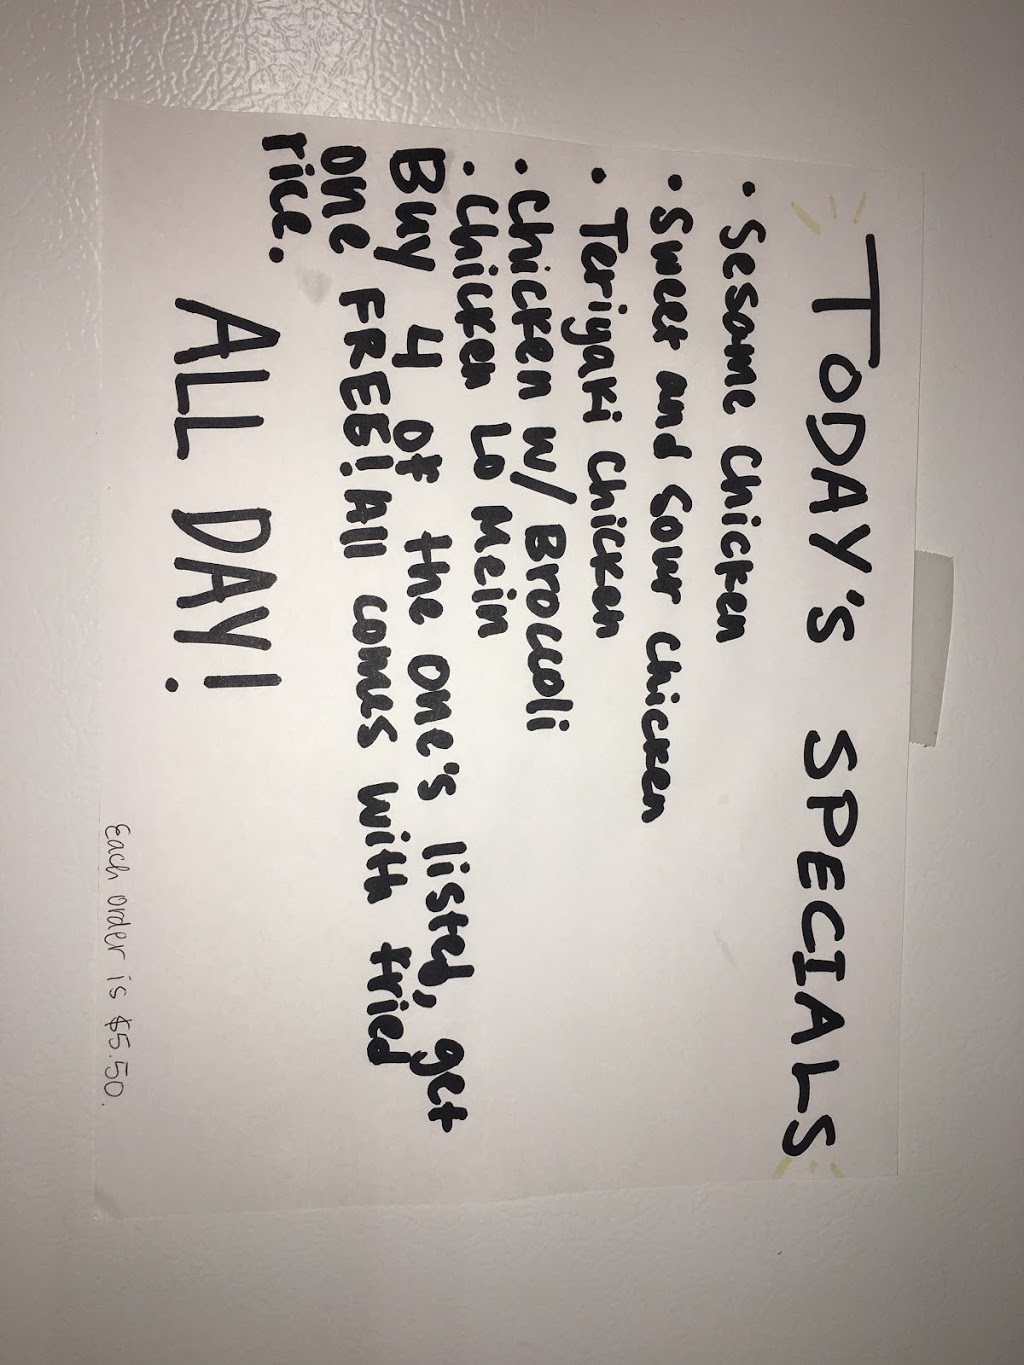 TODAY's SPECIALS
• Sesame Chicken
• Sweet and Sour chicken
• Teriyaki Chicken
• Chicken w/ Broccoli
• Chicken Lo Mein
Buy 4 of the one's listed, get
one FREE! All comes with fried
rice.
ALL DAY!
Each order is $5.50.